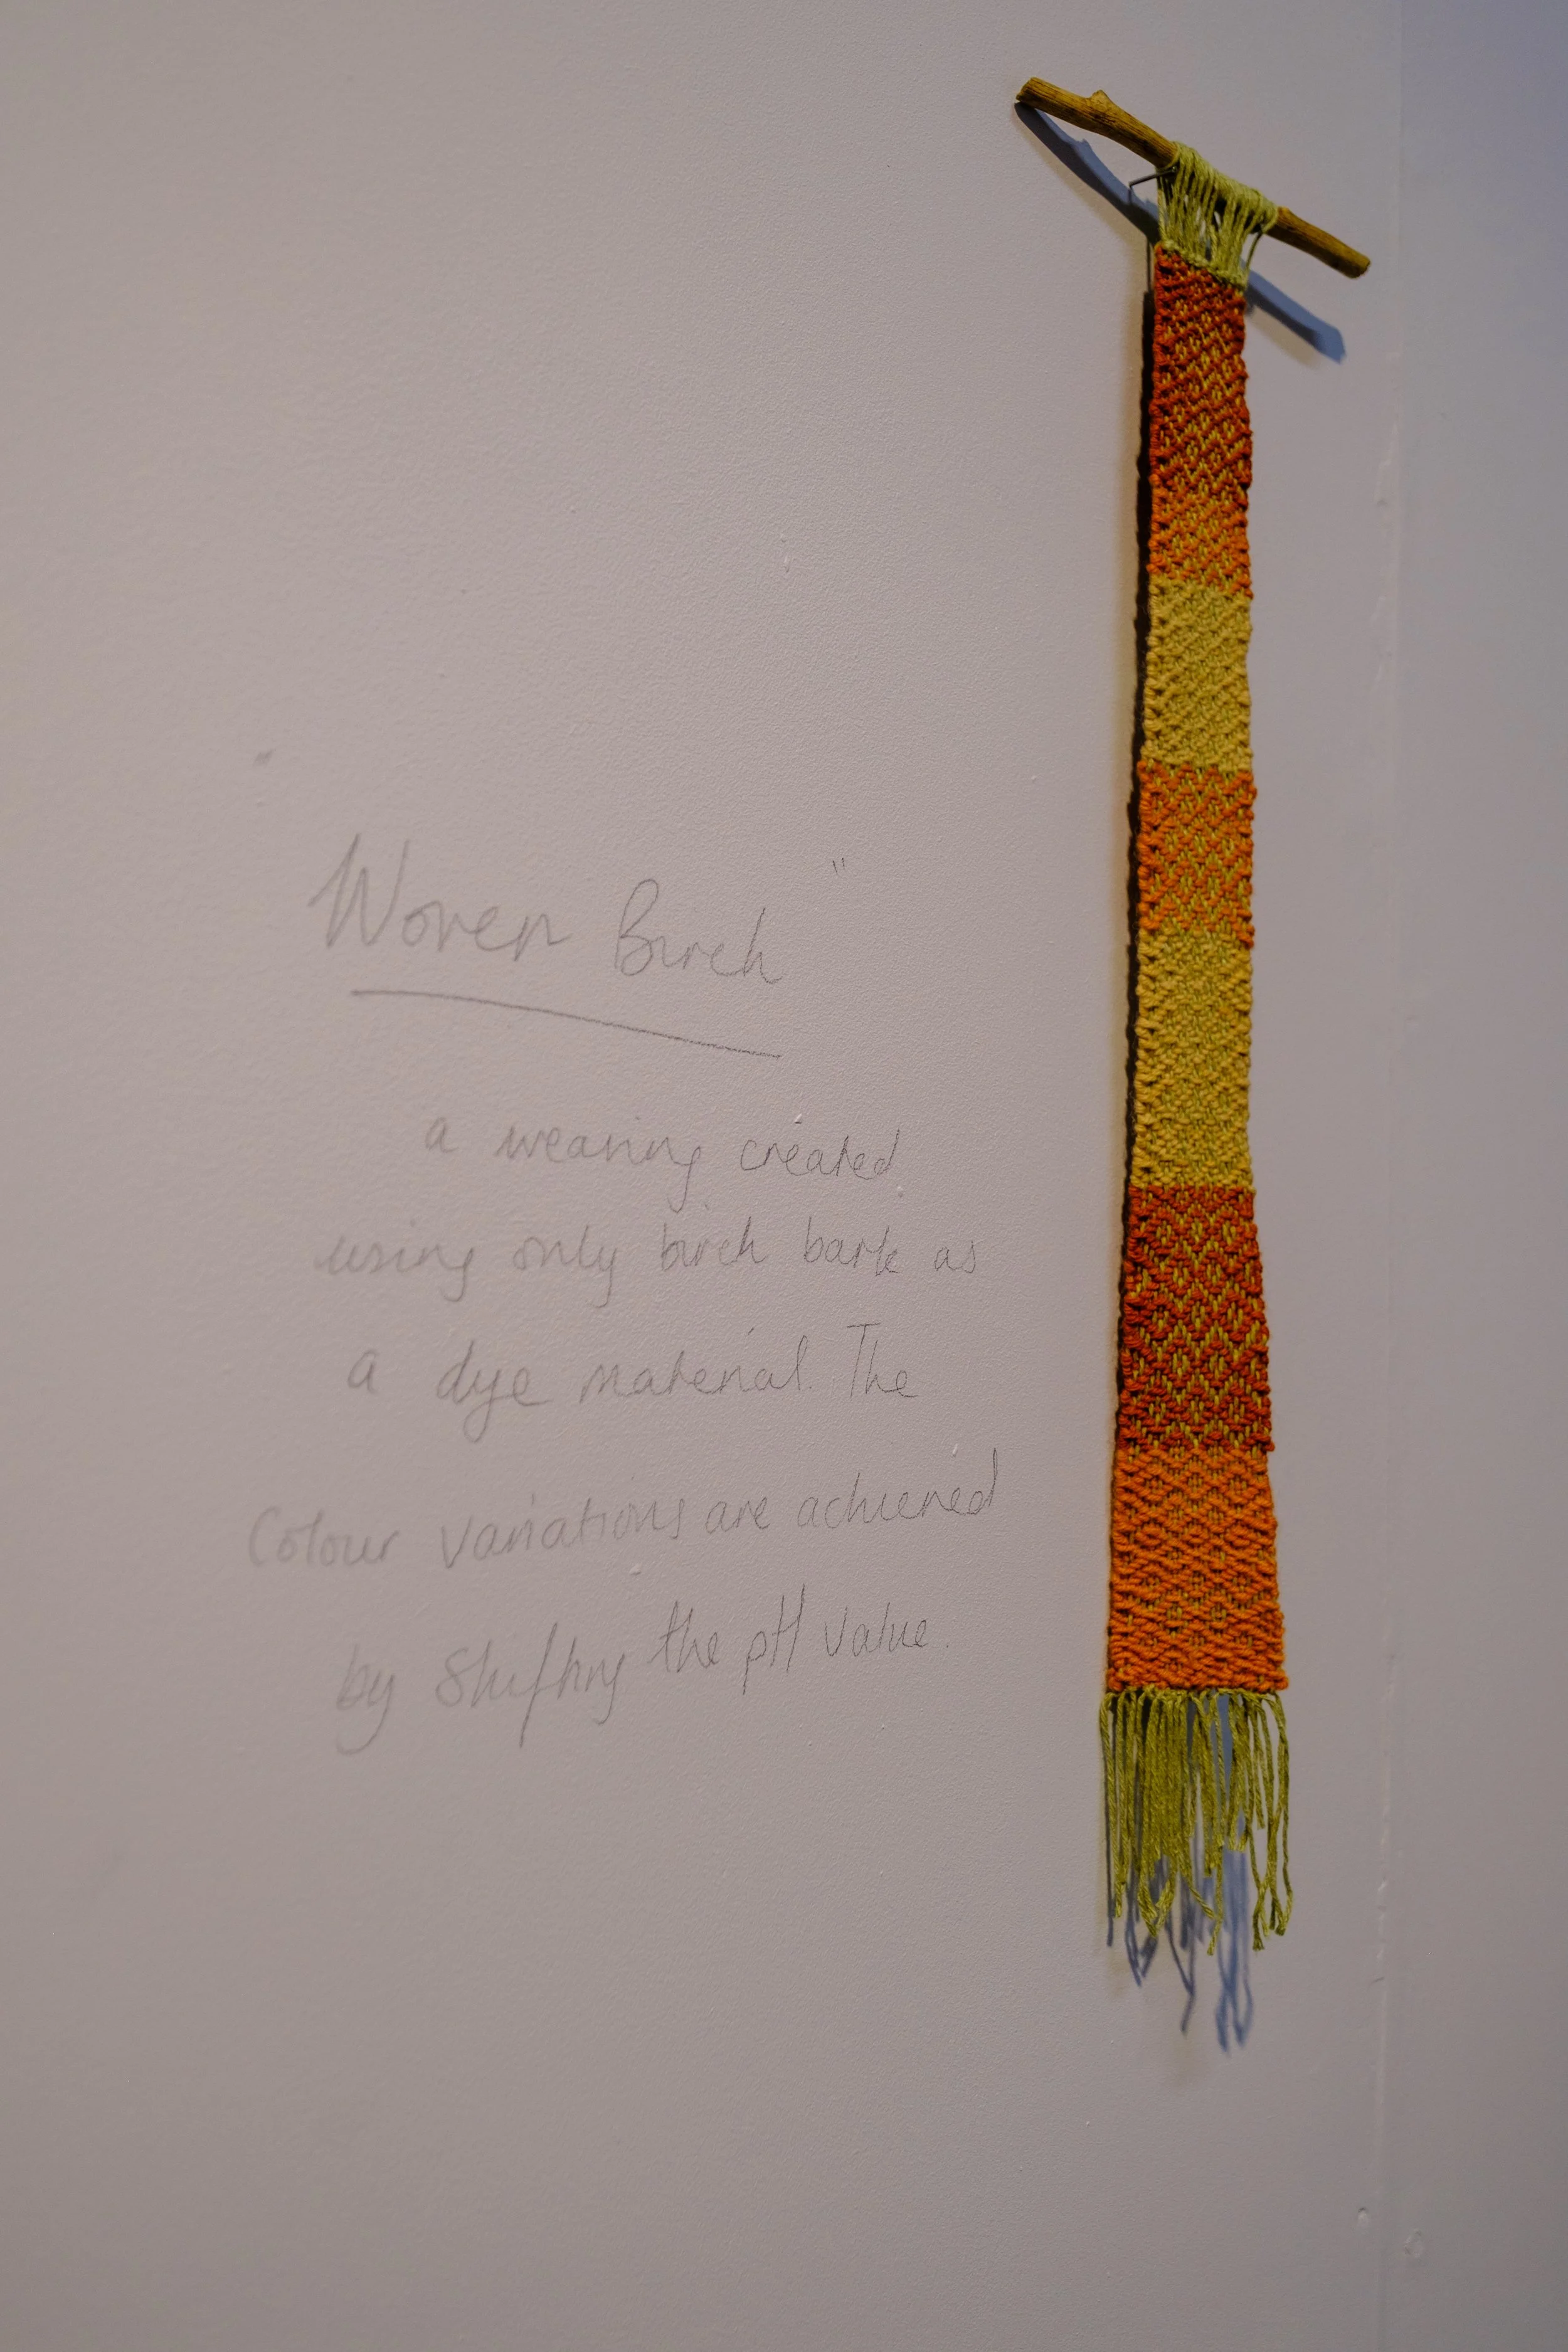 "Woven Birch"
a weaving created
using only birch bark as
a dye material. The
Colour variations are achieved
by Shifting the pH value.